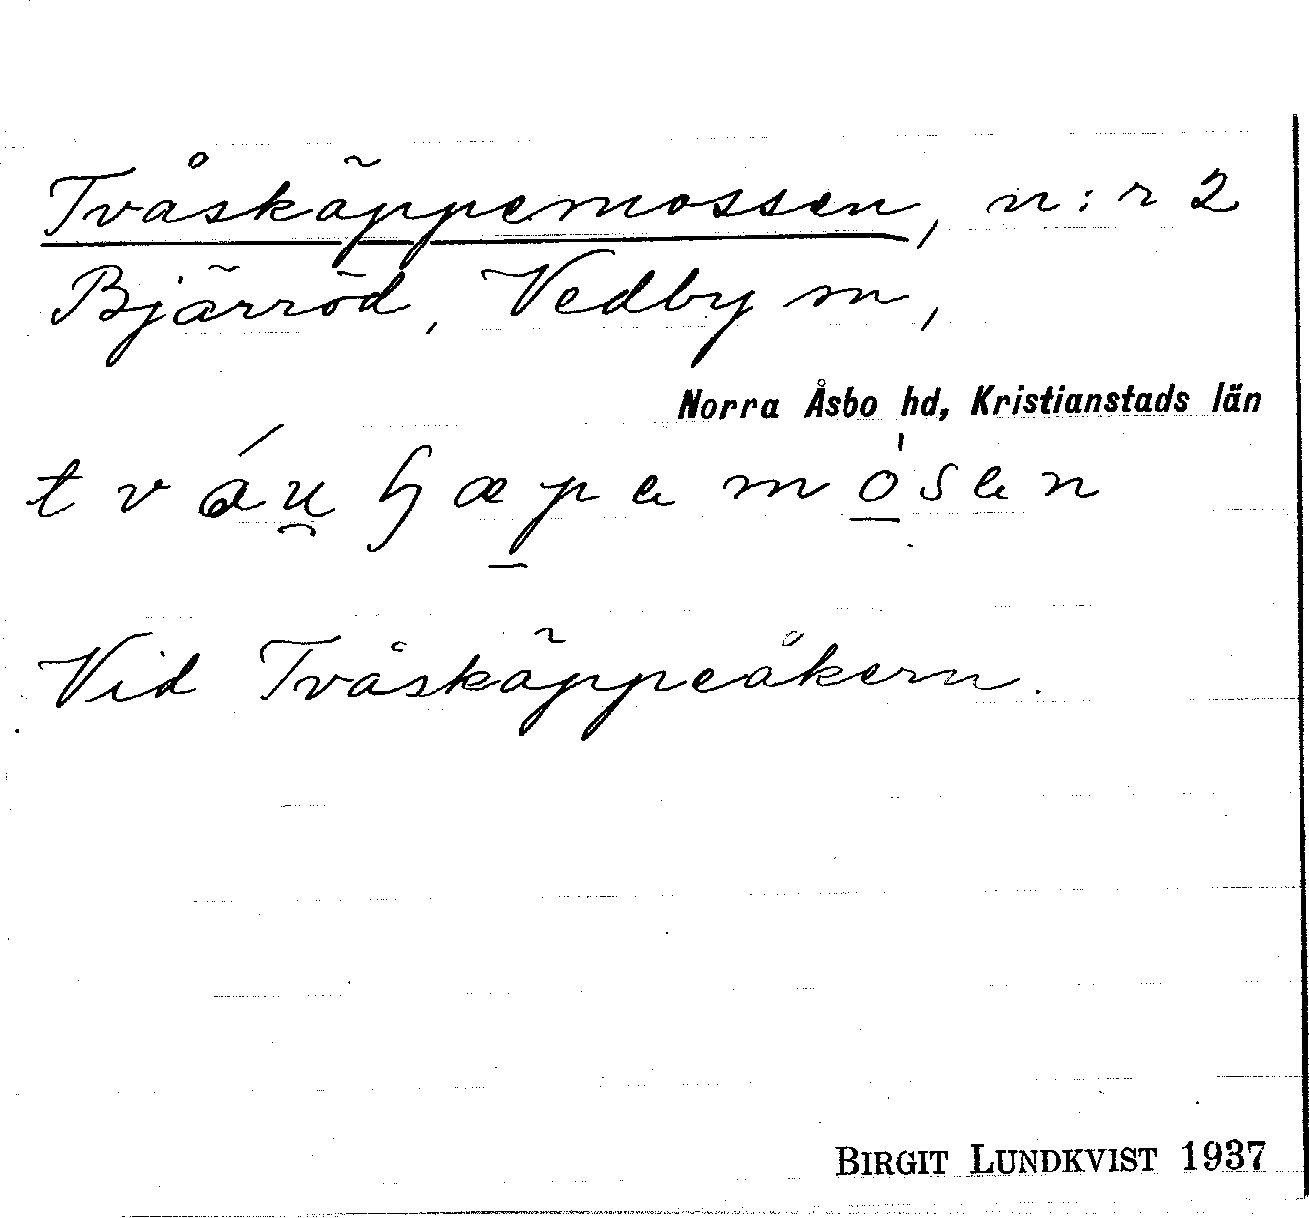 Tvåskäppemossen, n:r 2
Bjärröd, Vedby sn,
Norra Åsbo hd, Kristianstads län
Vid Tvåskäppeåkern.
BIRGIT LUNDKVIST 1937